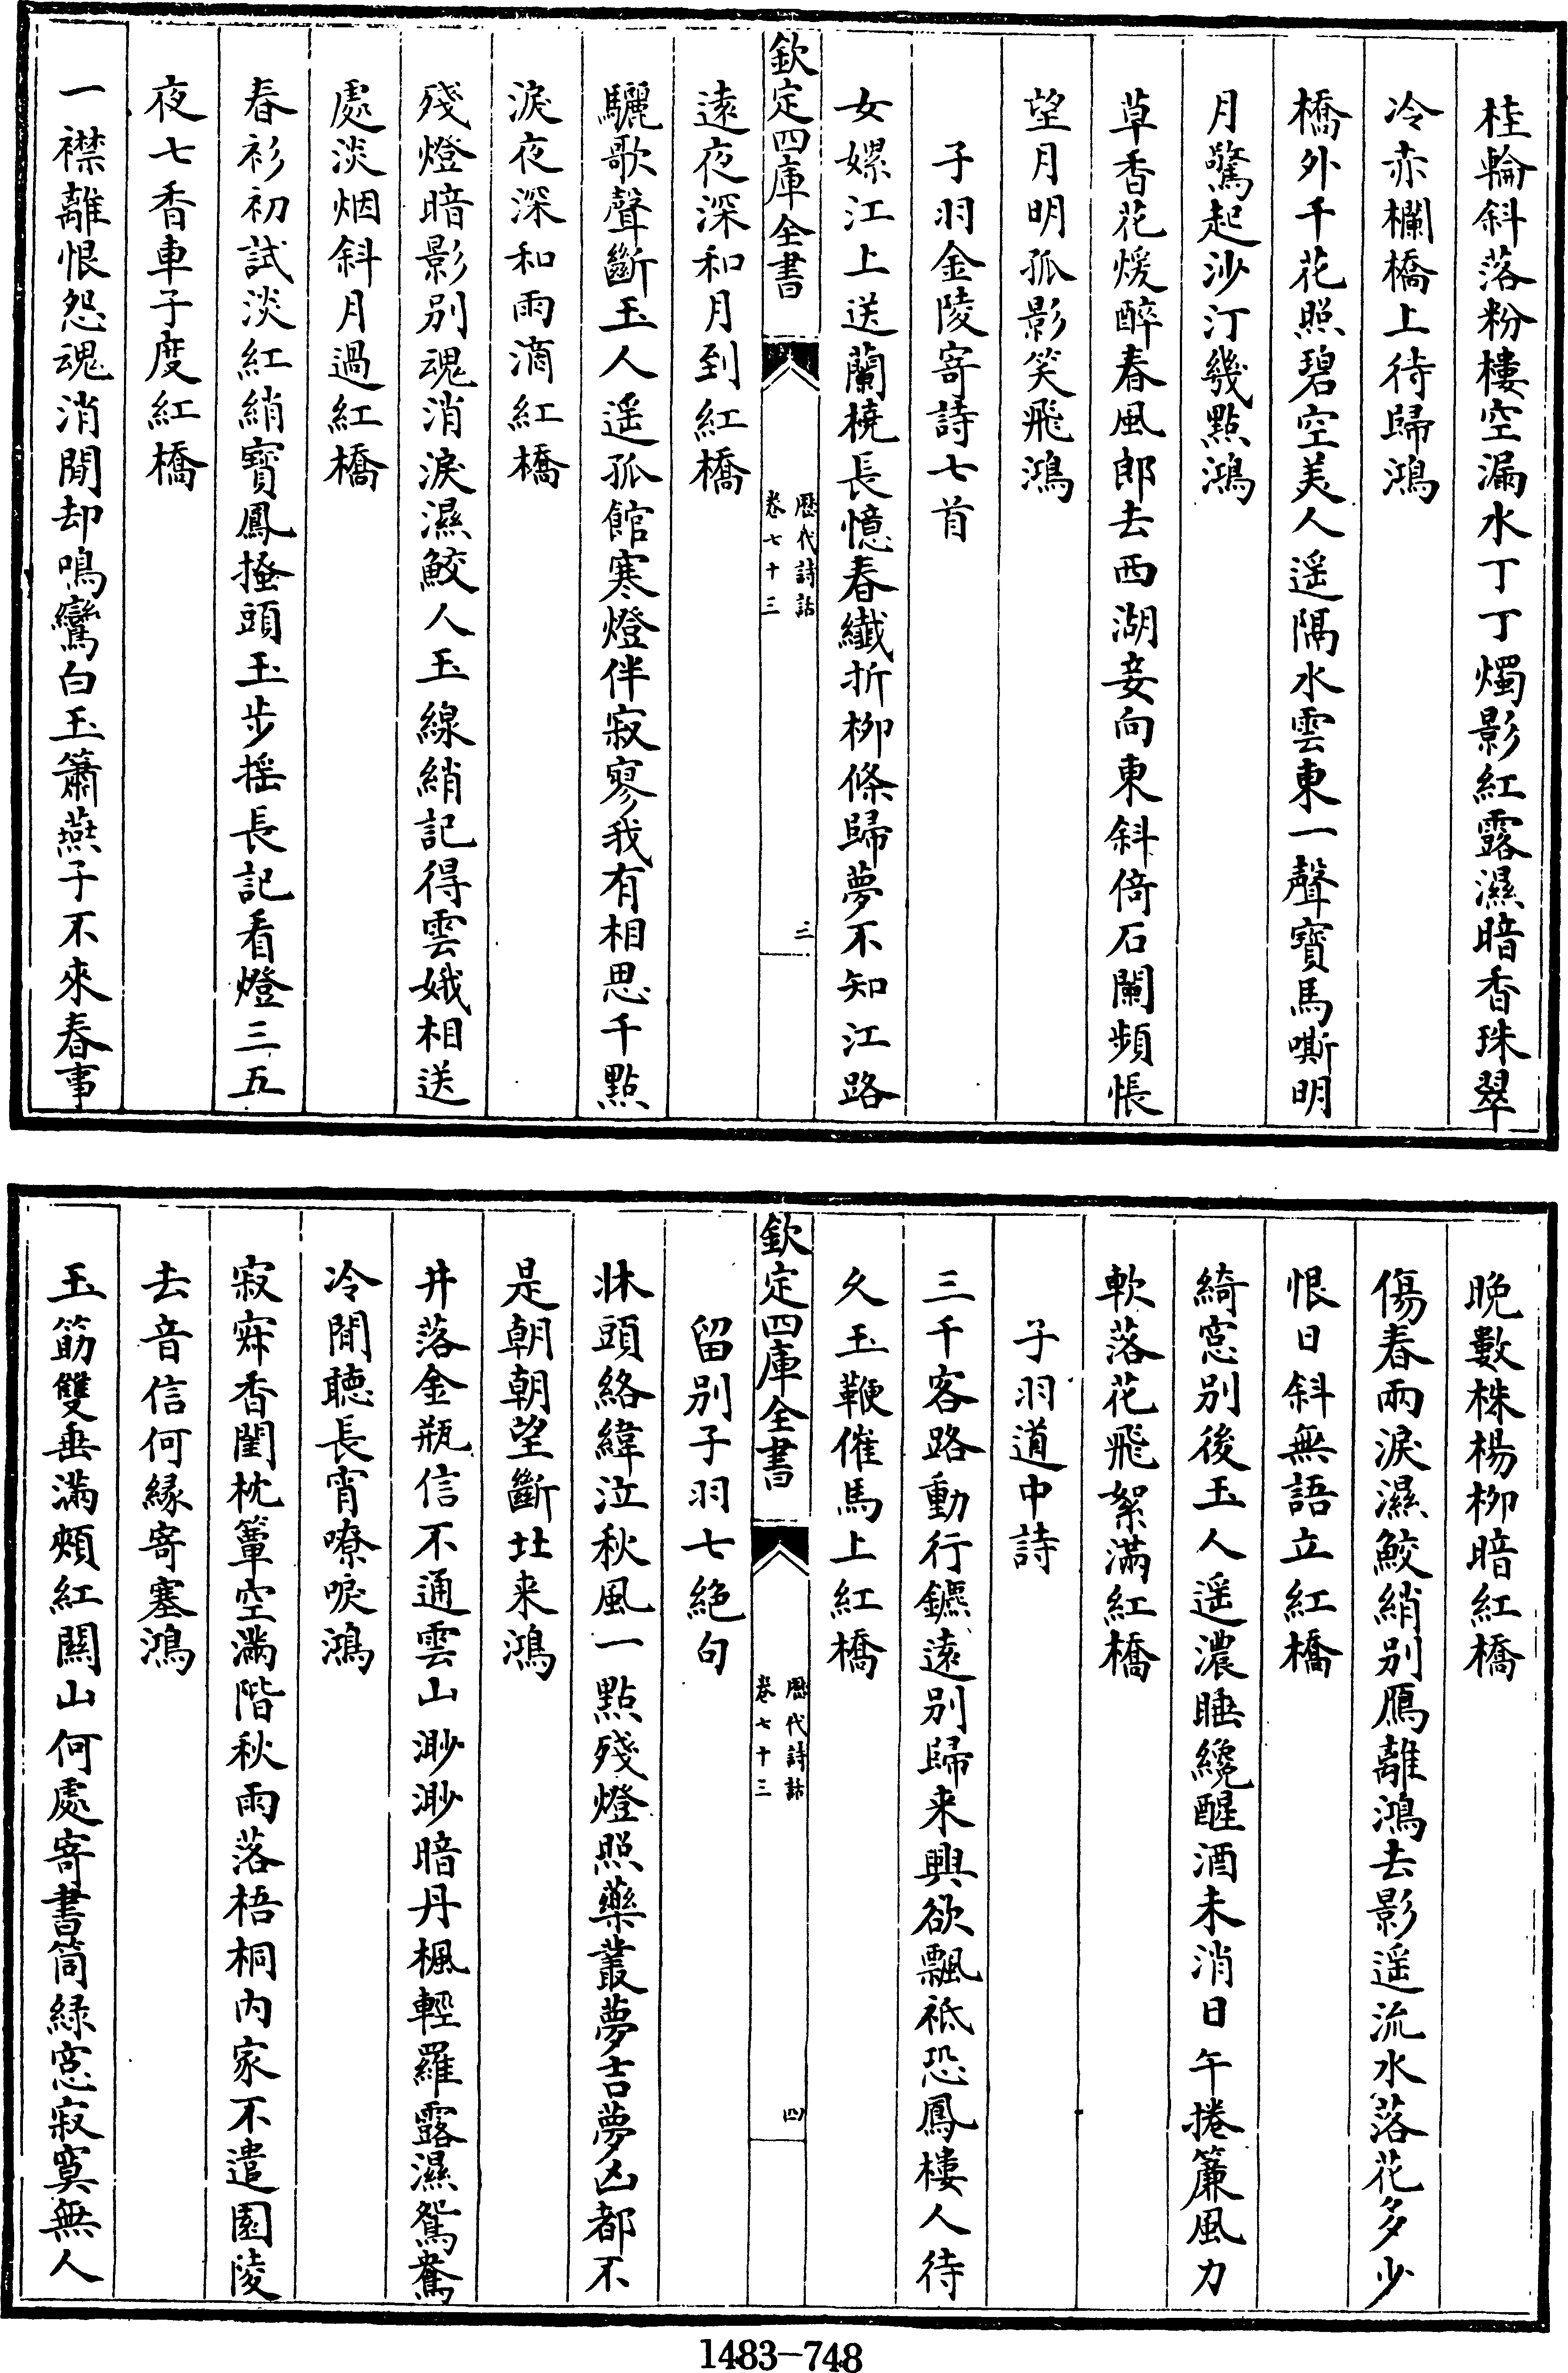 桂輪斜落粉樓空漏水丁丁燭影紅露濕暗香珠翠
冷赤欄橋上待歸鴻
橋外千花照碧空美人遥隔水雲東一聲寳馬嘶明
月驚起沙汀幾點鴻
草香花煖醉春風郎去西湖妾向東斜倚石闌頻悵
望月明孤影笑飛鴻
子羽金陵寄詩七首
女嫘江上送蘭橈長憶春纎折柳條歸夢不知江路
欽定四庫全書
歴代詩話
卷七十三
三
遠夜深和月到紅橋
驪歌聲斷玉人遥孤館寒燈伴寂寥我有相思千點
淚夜深和雨滴紅橋
殘燈暗影别魂消淚濕鮫人玉線綃記得雲娥相送
處淡烟斜月過紅橋
春衫初試淡紅綃寳鳳搔頭玉步揺長記看燈三五
夜七香車子度紅橋
一襟離恨怨魂消閒却鳴鸞白玉簫燕子不來春事
晚數株楊柳暗紅橋
傷春兩淚濕鮫綃别鴈離鴻去影遥流水落花多少
恨日斜無語立紅橋
綺窓别後玉人遥濃睡纔醒酒未消日午捲簾風力
軟落花飛絮滿紅橋
子羽道中詩
三千客路動行鑣遠别歸来興欲飄祗恐鳳樓人待
久玉鞭催馬上紅橋
欽定四庫全書
歴代詩話
卷七十三
四
留别子羽七絶句
牀頭絡緯泣秋風一點殘燈照藥叢夢吉夢凶都不
是朝朝望斷北来鴻
井落金瓶信不通雲山渺渺暗丹楓輕羅露濕鴛鴦
冷閒聽長宵嘹唳鴻
寂寐香閨枕簟空滿階秋雨落梧桐内家不遣園陵
去音信何縁寄塞鴻
玉筯雙垂滿頰紅闗山何處寄書筒緑窓寂寞無人
1483-748